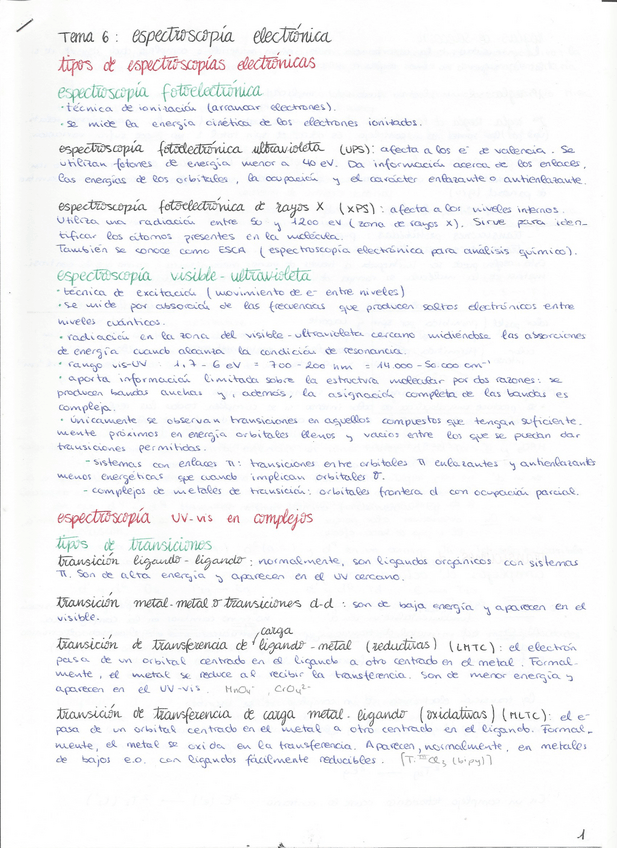 Tema 6: espectroscopía electrónica
tipos de espectroscopías electrónicas
espectroscopía fotoelectrónica
· técnica de ionización (arrancar electrones).
· se mide la energía cinética de los electrones ionizados.
espectroscopía fotoelectrónica ultravioleta (UPS): afecta a los e⁻ de valencia. Se
utilizan fotones de energía menor a 40 eV. Da información acerca de los enlaces,
las energías de los orbitales, la ocupación y el carácter enlazante o antienlazante.
espectroscopía fotoelectrónica de rayos X (XPS): afecta a los niveles internos.
Utiliza una radiación entre 50 y 1200 eV (zona de rayos X). Sirve para iden-
tificar los átomos presentes en la molécula.
También se conoce como ESCA (espectroscopía electrónica para análisis químico).
espectroscopía visible-ultravioleta
· técnica de excitación (movimiento de e⁻ entre niveles)
· se mide por absorción de las frecuencias que producen saltos electrónicos entre
niveles cuánticos.
· radiación en la zona del visible-ultravioleta cercano midiéndose las absorciones
de energía cuando alcanza la condición de resonancia.
· rango vis-UV : 1,7 - 6 eV = 700 - 200 nm = 14 000 - 50 000 cm⁻¹
· aporta información limitada sobre la estructura molecular por dos razones: se
producen bandas anchas y, además, la asignación completa de las bandas es
compleja.
· únicamente se observan transiciones en aquellos compuestos que tengan suficiente-
mente próximos en energía orbitales llenos y vacíos entre los que se puedan dar
transiciones permitidas.
- sistemas con enlaces π: transiciones entre orbitales π enlazantes y antienlazantes
menos energéticas que cuando implican orbitales σ.
- complejos de metales de transición: orbitales frontera d con ocupación parcial.
espectroscopía UV-vis en complejos
tipos de transiciones
transición ligando-ligando: normalmente, son ligandos orgánicos con sistemas
π. Son de alta energía y aparecen en el UV cercano.
transición metal-metal o transiciones d-d : son de baja energía y aparecen en el
visible.
transición de transferencia de carga ligando-metal (reductivas) (LMTC): el electrón
pasa de un orbital centrado en el ligando a otro centrado en el metal. Formal-
mente, el metal se reduce al recibir la transferencia. Son de menor energía y
aparecen en el UV-vis. MnO₄⁻, CrO₄²⁻
transición de transferencia de carga metal-ligando (oxidativas) (MLTC): el e⁻
pasa de un orbital centrado en el metal a otro centrado en el ligando. Formal-
mente, el metal se oxida en la transferencia. Aparecen, normalmente, en metales
de bajos e.o. con ligandos fácilmente reducibles. [TiᴵᴵᴵCl₃(bipy)]
1